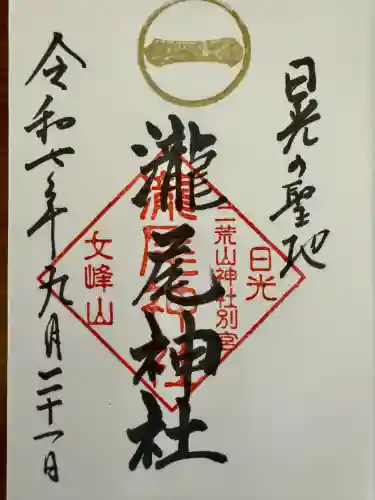 日光の聖地
日光
二荒山神社別宮
瀧尾神社
女峰山
令和七年九月二十一日